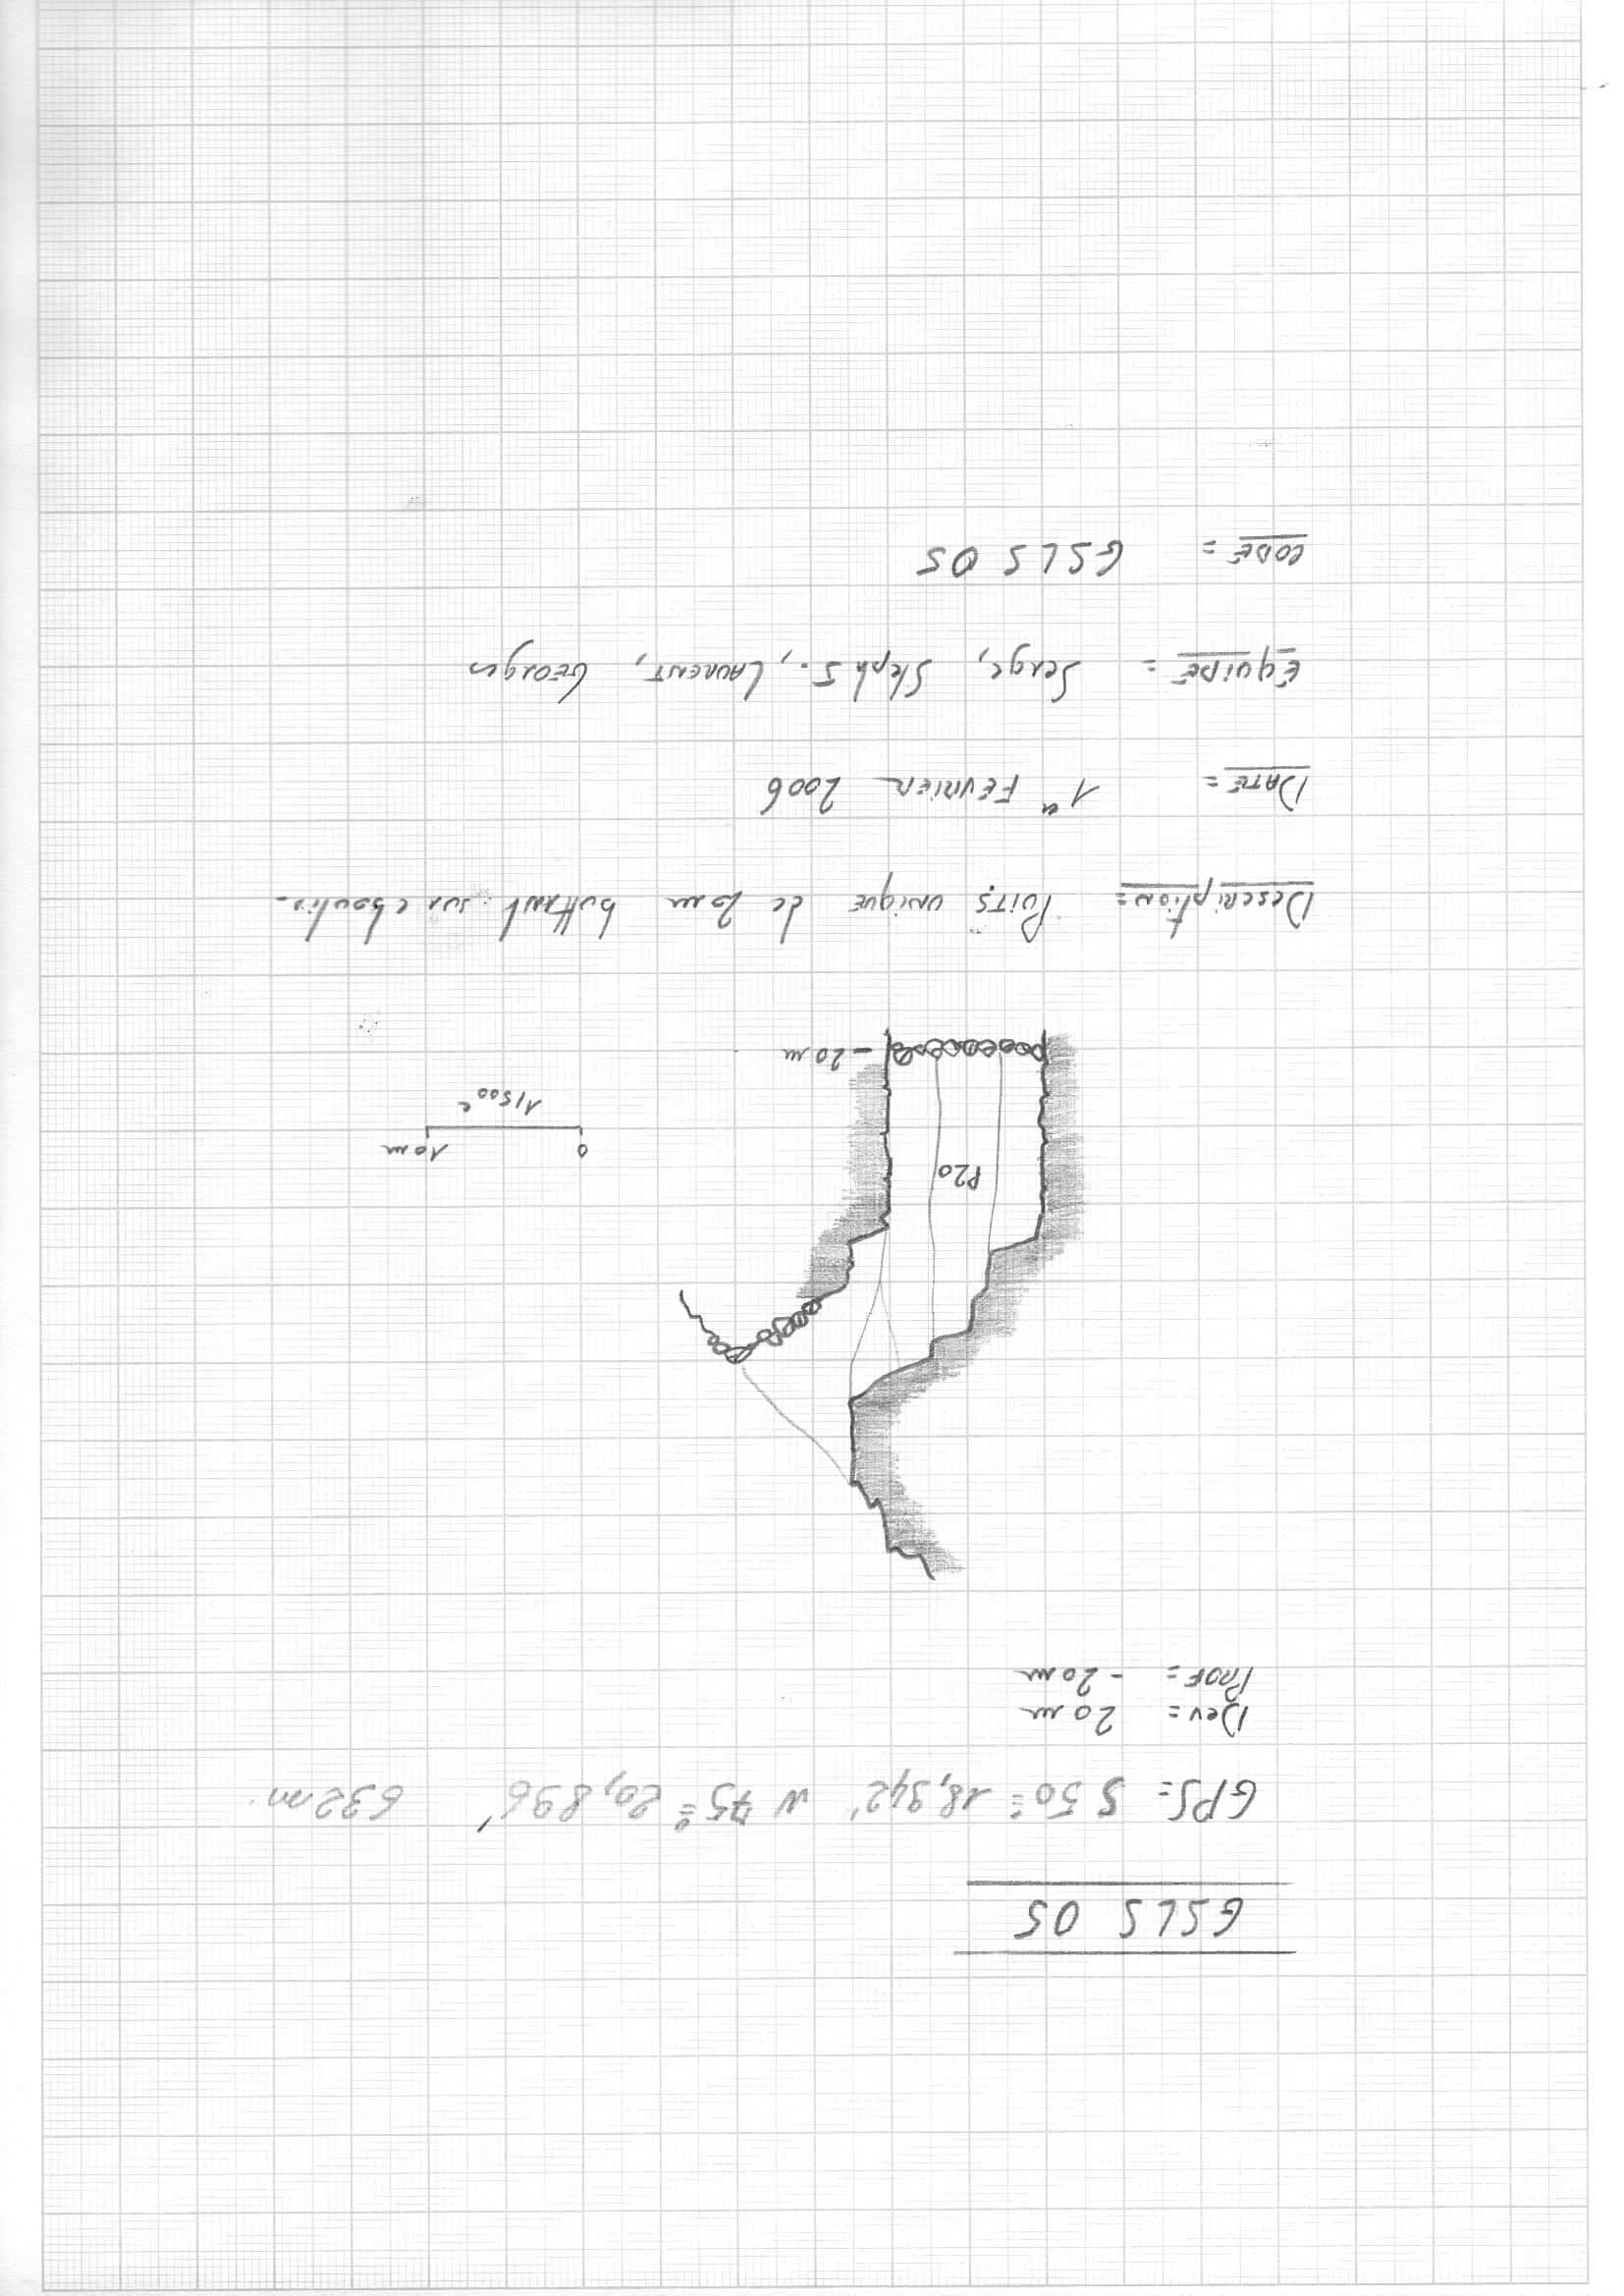 GSLS 05
GPS = S 50° 18,342' W 75° 20,896' 632 m
Dev = 20 m
PROF = - 20 m
P20
0 10 m
1/500e
- 20 m
Description = Puits unique de 20 m buttant sur eboulis.
DATE = 1er FEVRIER 2006
EQUIPE = Serge, Steph S., LAURENT, GEORGES
CODE = GSLS 05